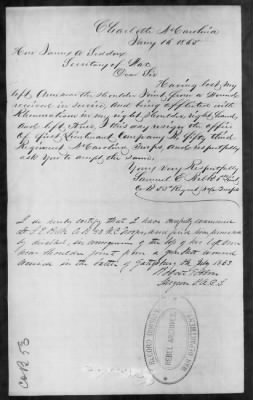 Charlotte N Carolina
Jany 16 1865
Hon James A Seddon
Secretary of War
Dear Sir
Having lost my
left Arm near the shoulder Joint from a Wound
received in service, and being afflicted with
Rheumatism in my right Shoulder, right hand,
and left Knee, I this day resign the office
of first Lieutenant Company K fifty third
Regiment N Carolina Troops, and respectfully
ask you to accept the same.
Yours very Respectfully
Samuel E 1st Lieut
Co K 53 Regmt N.C. Troops
I do hereby certify that I have carefully examined
Lt S E Co K 53 N.C. Troops, and find him permanently
disabled, in consequence of the loss of his left arm
near shoulder joint from a gun shot wound
received in the battle of Gettysburg Pa July 1863
Surgeon P.A.C.S.
RECORD DIVISION
REBEL ARCHIVES
WAR DEPARTMENT
Co K 53